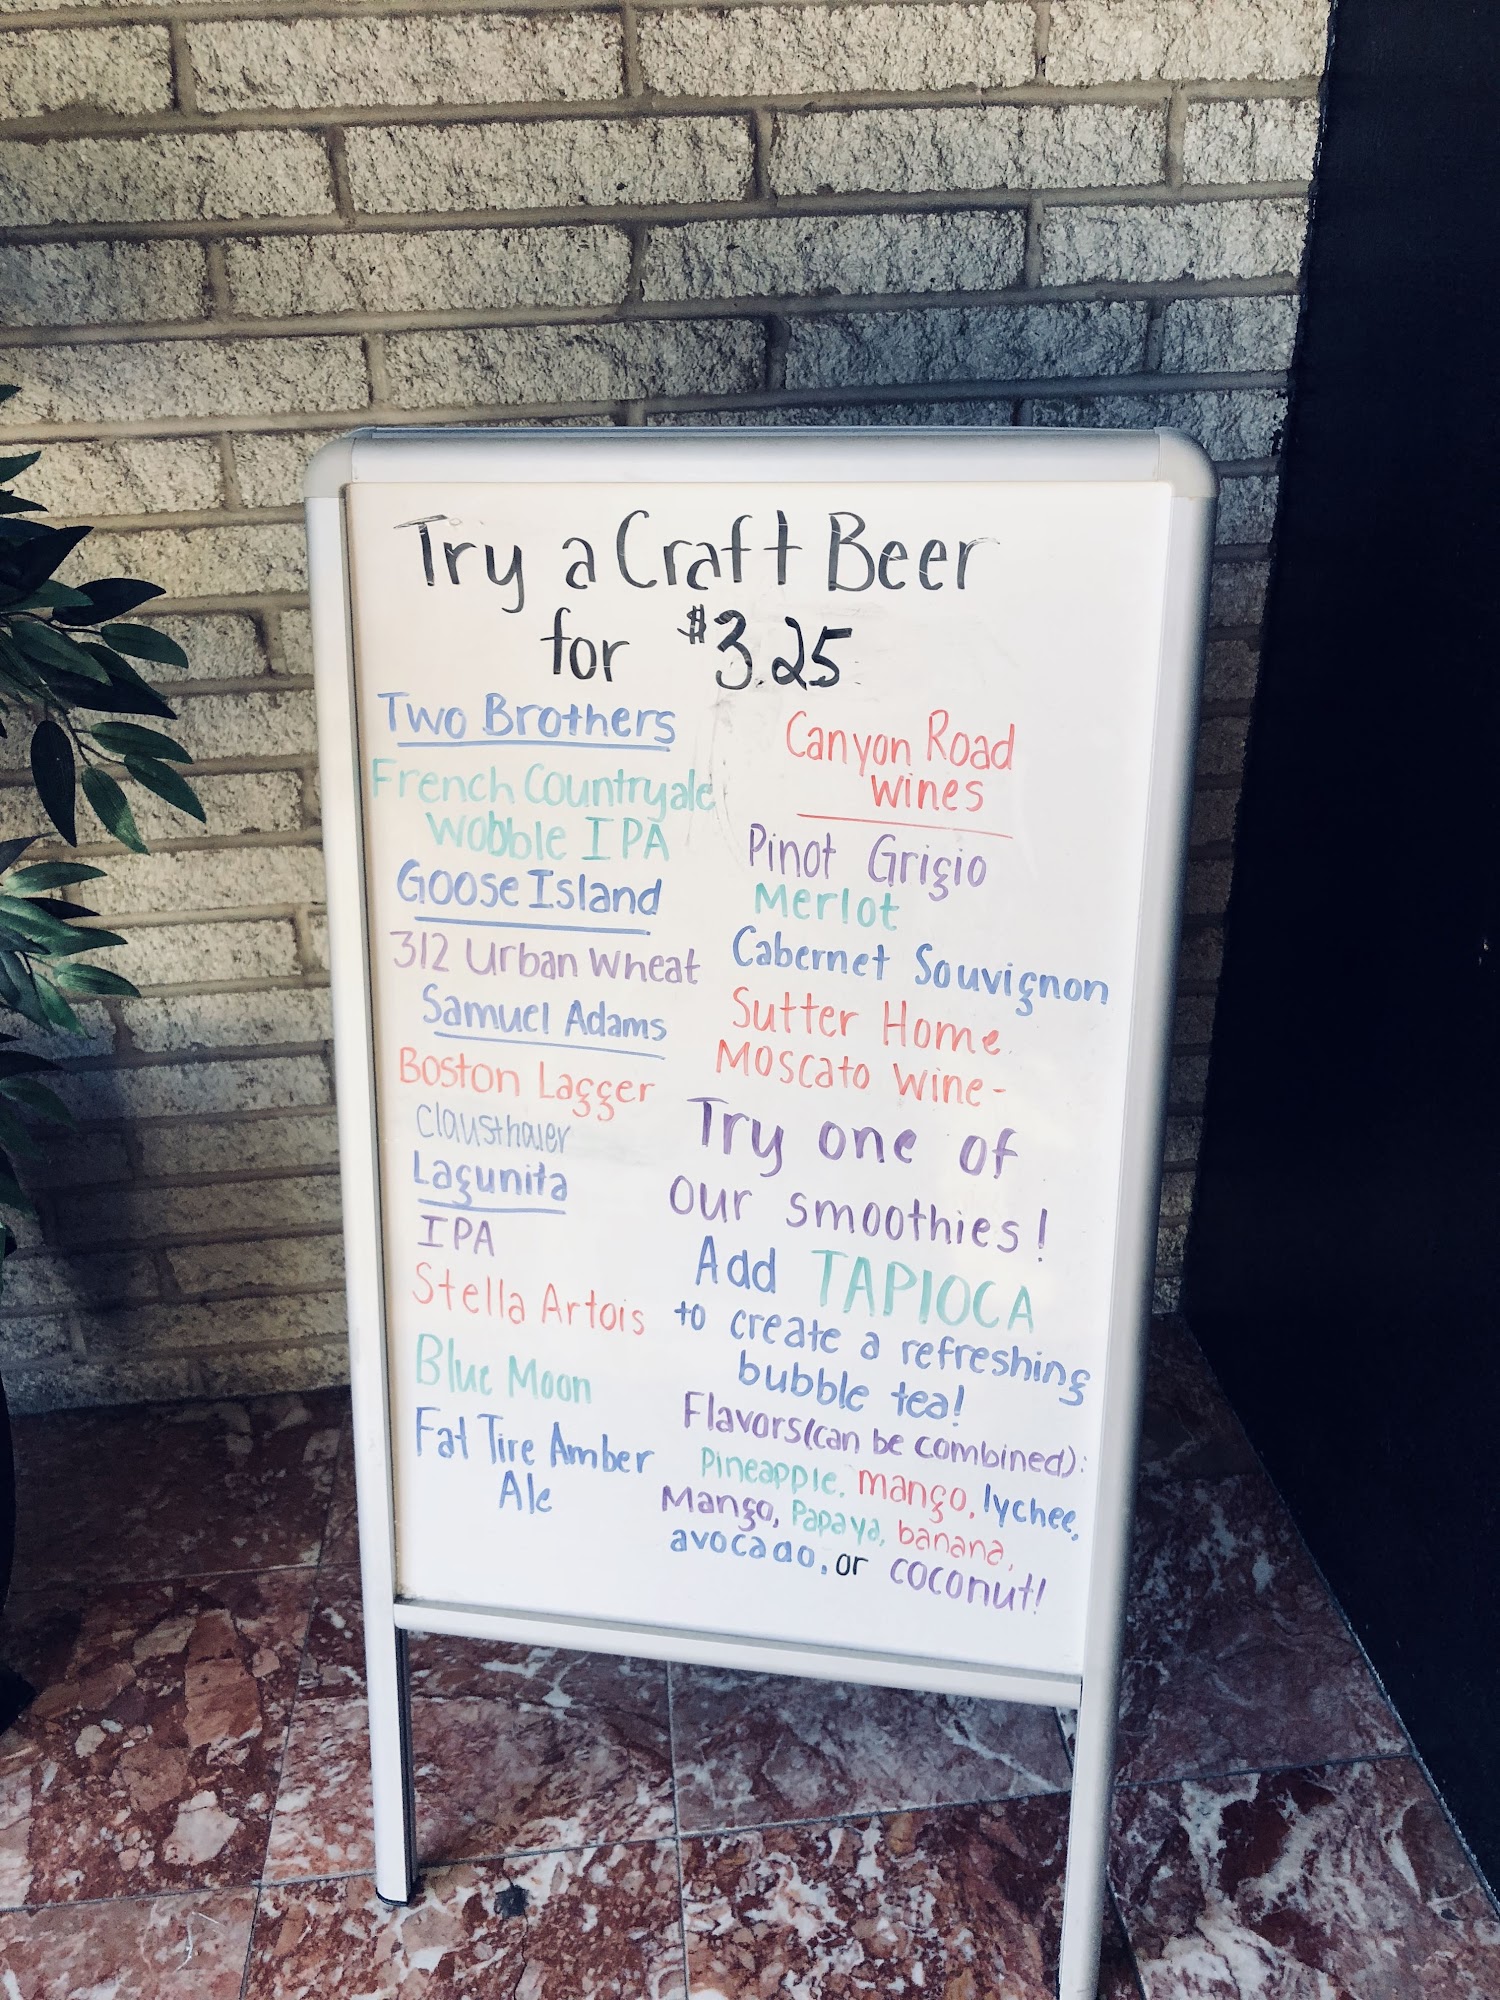 Try a Craft Beer
for $3.25
Two Brothers
French Countryale
Wobble IPA
Goose Island
312 Urban Wheat
Samuel Adams
Boston Lagger
Clausthaler
Lagunita
IPA
Stella Artois
Blue Moon
Fat Tire Amber
Ale
Canyon Road
Wines
Pinot Grigio
Merlot
Cabernet Souvignon
Sutter Home
Moscato Wine-
Try one of
our smoothies!
Add TAPIOCA
to create a refreshing
bubble tea!
Flavors(can be combined):
Pineapple, mango, lychee,
Mango, Papaya, banana,
avocado, or coconut!